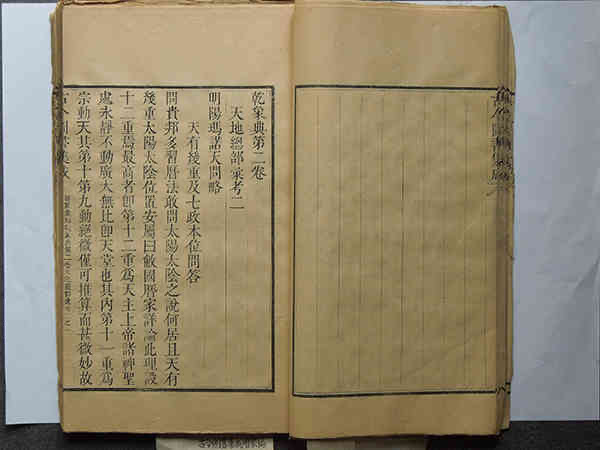 乾象典第二卷
天地總部彙考二
明陽瑪諾天問略
天有幾重及七政本位問答
問貴邦多習曆法敢問太陽太陰之說何居且天有
幾重太陽太陰位置安屬曰敝國曆家詳論此理設
十二重焉最高者即第十二重為天主上帝諸神聖
處永靜不動廣大無比即天堂也其內第十一重為
宗動天其第十第九動絕微僅可推算而甚微妙故
古今圖書集成